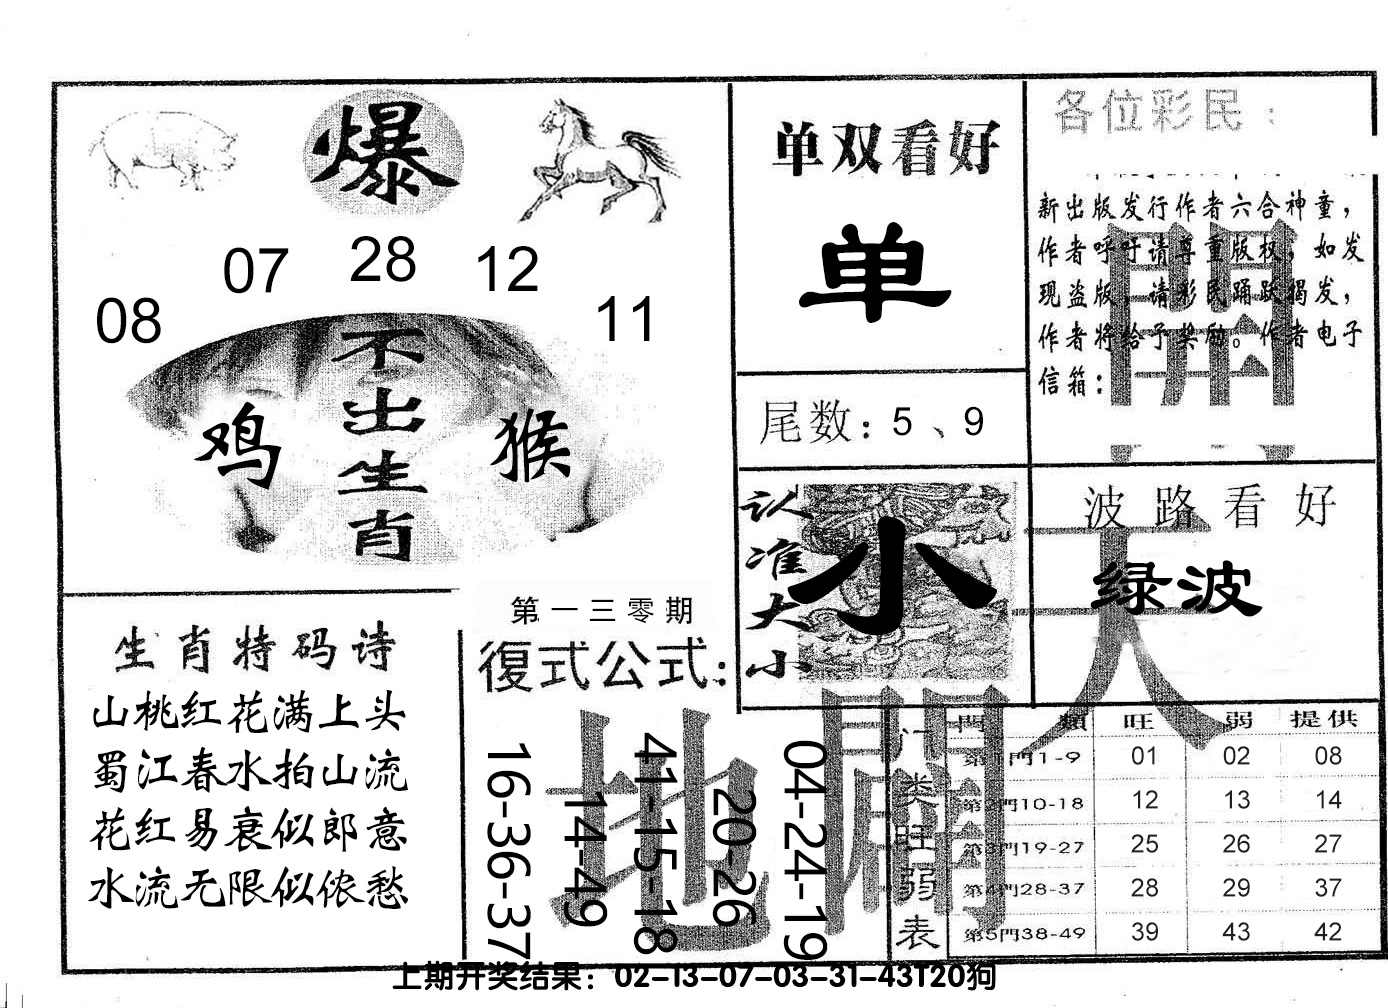 爆
08 07 28 12 11
不出生肖
鸡 猴
生肖特码诗
山桃红花满上头
蜀江春水拍山流
花红易衰似郎意
水流无限似侬愁
第一三零期
復式公式:
16-36-37
14-49
41-15-18
20-26
04-24-19
单双看好
单
尾数: 5 、9
认准大小
小
各位彩民:
新出版发行作者六合神童，
作者呼吁请尊重版权，如发
现盗版，请彩民踊跃揭发，
作者将给予奖励。作者电子
信箱:
波路看好
绿波
天
開
地
闢
门类旺弱表
門類 旺 弱 提供
第1門1-9 01 02 08
第2門10-18 12 13 14
第3門19-27 25 26 27
第4門28-37 28 29 37
第5門38-49 39 43 42
上期开奖结果：02-13-07-03-31-43T20狗